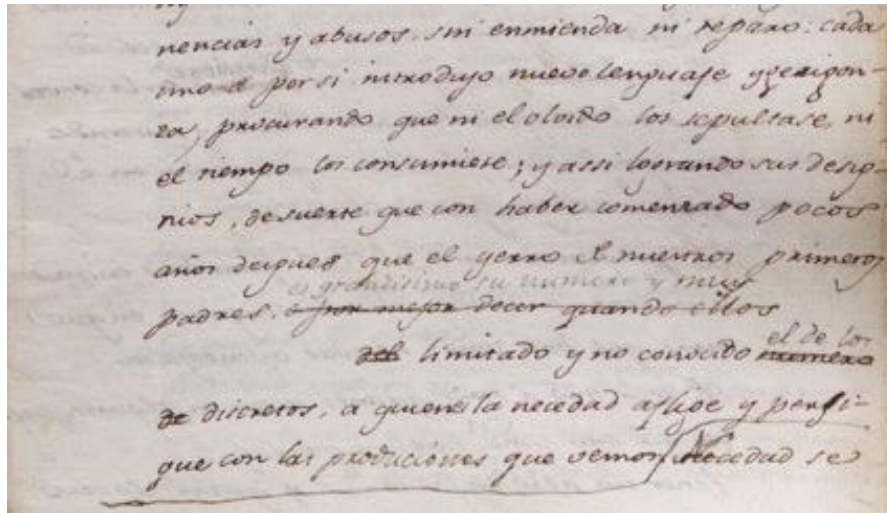 nencias y abusos sin enmienda ni reparo: cada
uno de por si introdujo nuevo lenguaje y gerigon-
za, procurando que ni el olvido los sepultase, ni
el tiempo los consumiese; y assi logrando sus desig-
nios, de suerte que con haber comenzado pocos
años despues que el yerro de nuestros primeros
es grandisimo su numero y muy
padres, o por mejor decir quando ellos
el de los
limitado y no conocido numero
de discretos, a quienes la necedad aflige y persi-
gue con las producciones que vemos Necedad se